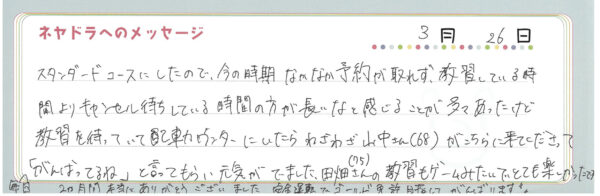 ネヤドラへのメッセージ 3月 26日
スタンダードコースにしたので、今の時期なかなか予約が取れず教習している時
間よりキャンセル待ちしている時間の方が長いなと感じることが多々あったけど
教習を待っていて配車カウンターにいたらわざわざ山中さん(68)がこちらに来てくださって
「がんばってるね」と言ってもらい元気がでました。田畑さん(75)の教習もゲームみたいでとても楽しかったです
毎日 20日間本当にありがとうございました 安全運転でゴールド免許目指して がんばります。